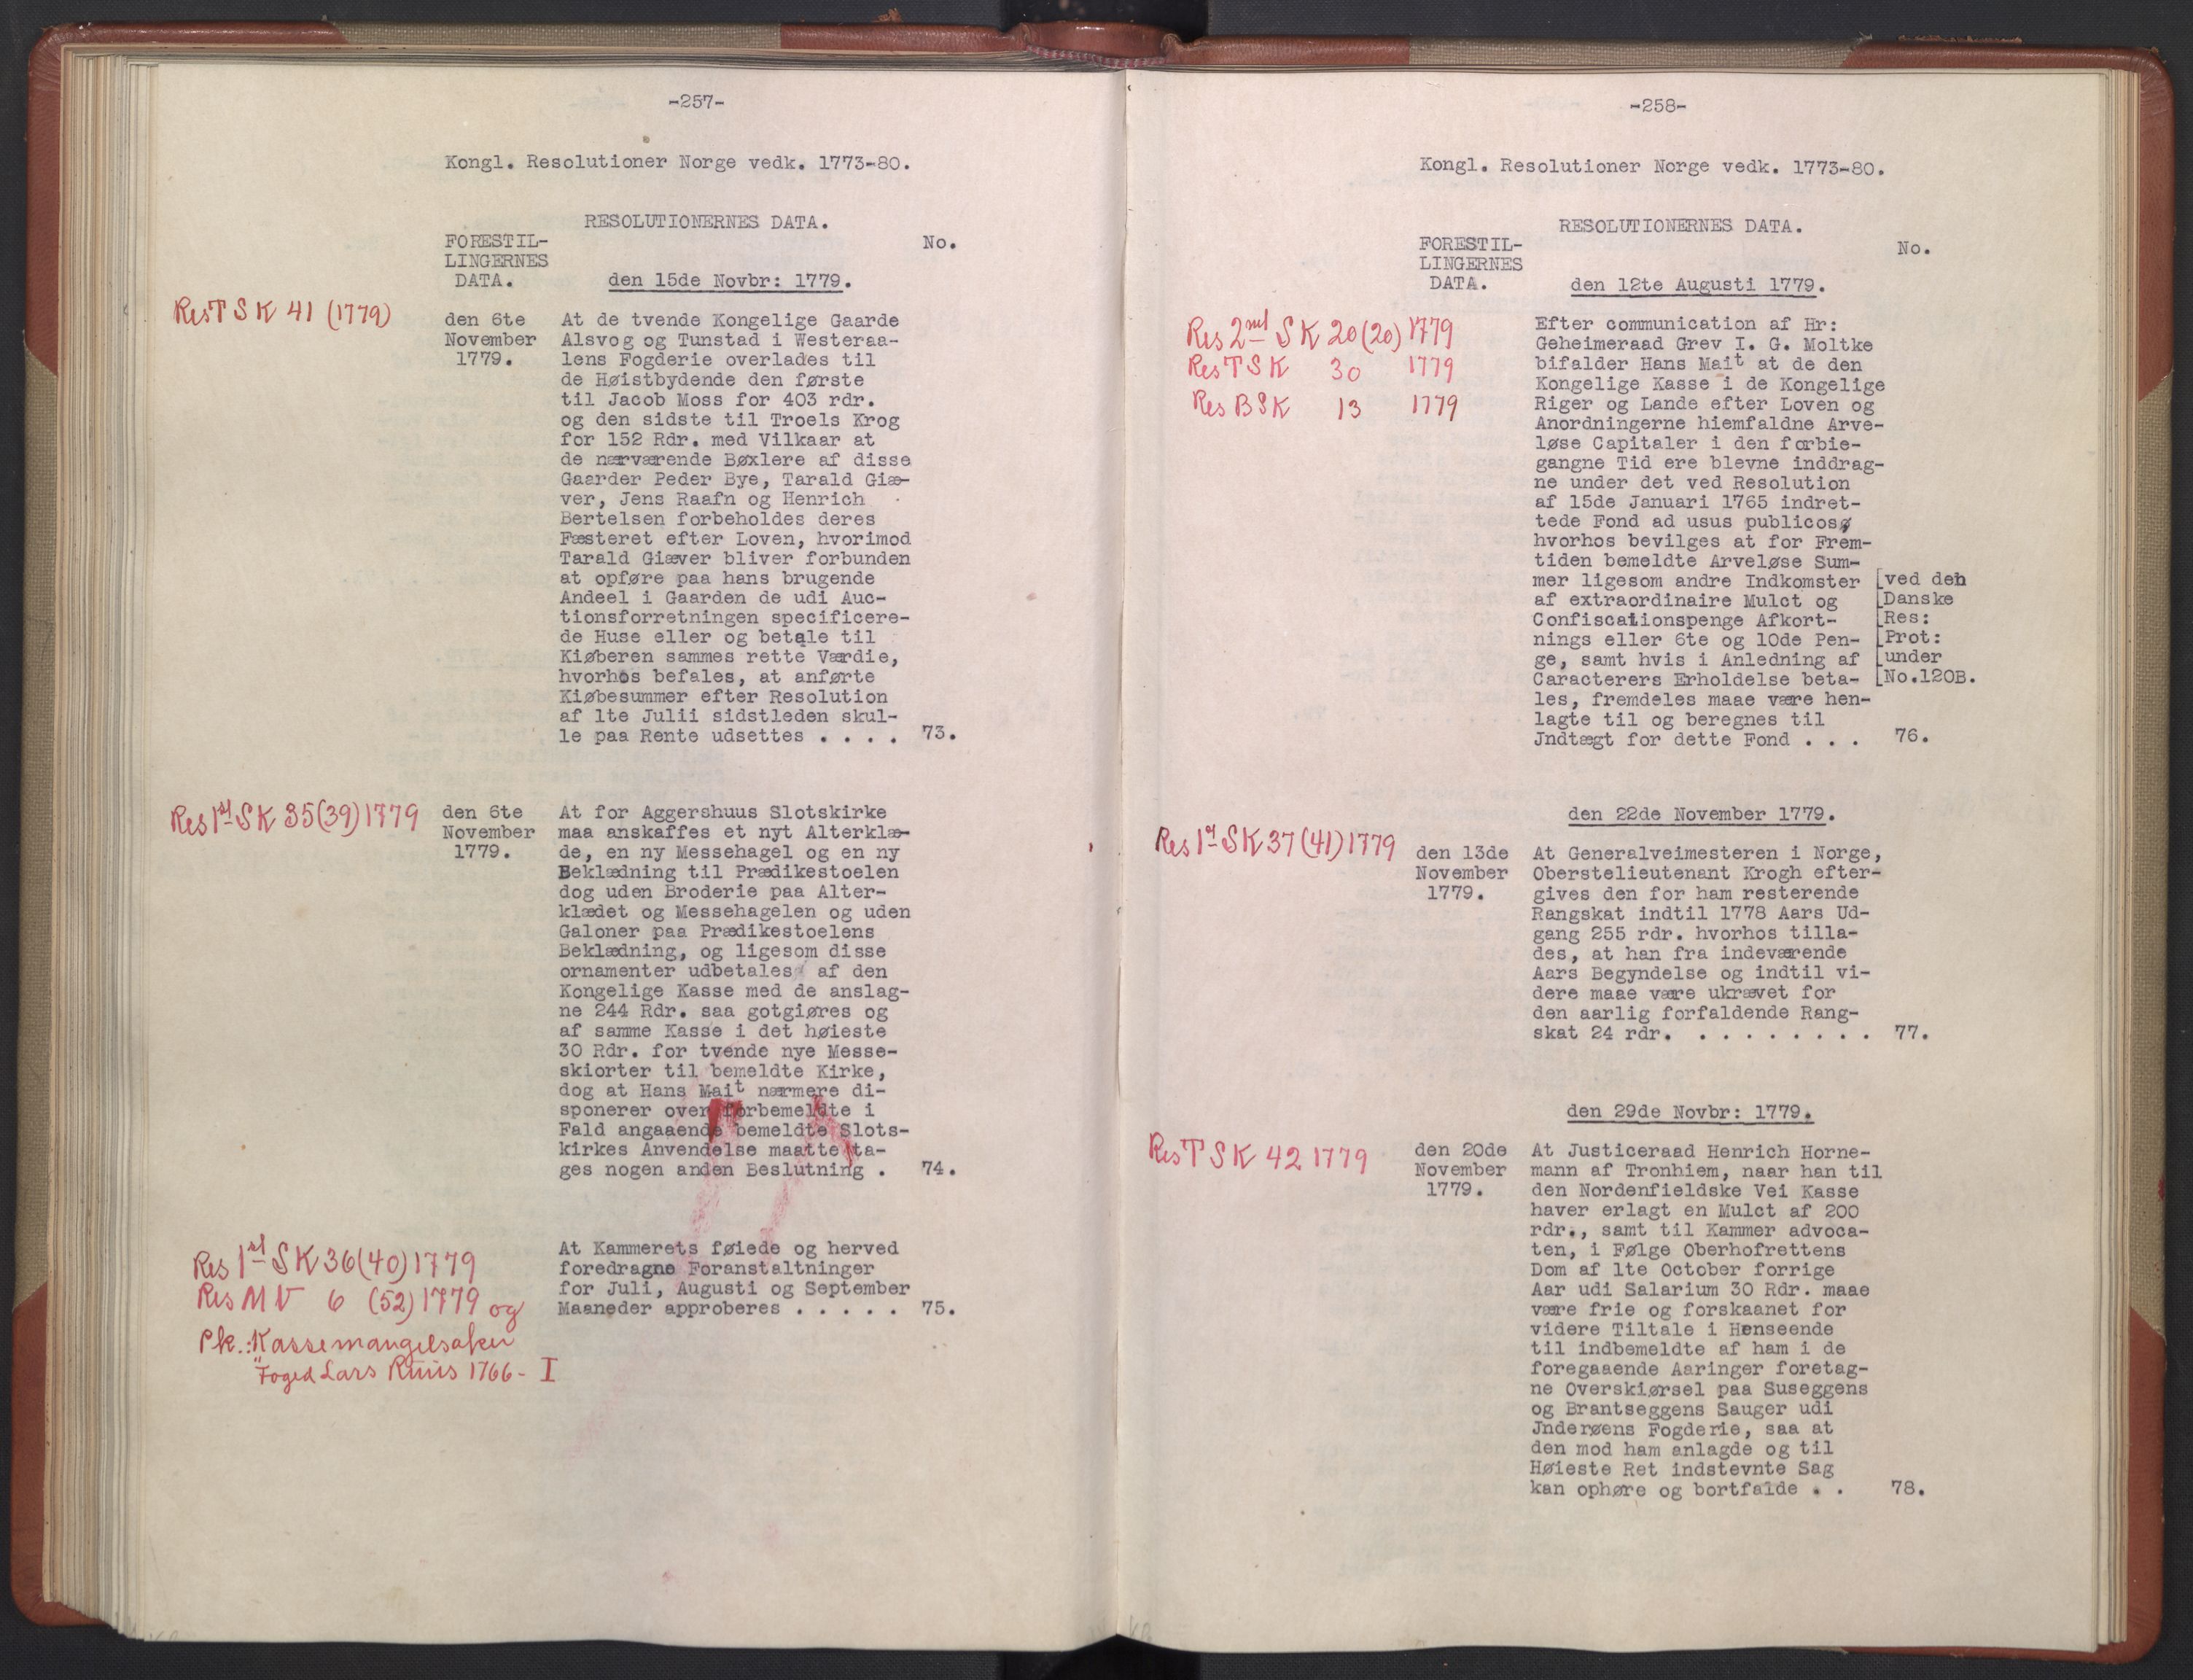 -257-
Kongl. Resolutioner Norge vedk. 1773-80.
RESOLUTIONERNES DATA.
FORESTIL-
LINGERNES
DATA.
No.
den 15de Novbr: 1779.
Res T S K 41 (1779)
den 6te
November
1779.
At de tvende Kongelige Gaarde
Alsvog og Tunstad i Westeraa-
lens Fogderie overlades til
de Høistbydende den første
til Jacob Moss for 403 rdr.
og den sidste til Troels Krog
for 152 Rdr. med Vilkaar at
de nærværende Bøxlere af disse
Gaarder Peder Bye, Tarald Giæ-
ver, Jens Raafn og Henrich
Bertelsen forbeholdes deres
Fæsteret efter Loven, hvorimod
Tarald Giæver bliver forbunden
at opføre paa hans brugende
Andeel i Gaarden de udi Auc-
tionsforretningen specificere-
de Huse eller og betale til
Kiøberen sammes rette Værdie,
hvorhos befales, at anførte
Kiøbesummer efter Resolution
af 1te Julii sidstleden skul-
le paa Rente udsettes . . . . 73.
Res 1st SK 35(39)1779
den 6te
November
1779.
At for Aggershuus Slotskirke
maa anskaffes et nyt Alterklæ-
de, en ny Messehagel og en ny
Beklædning til Prædikestoelen
dog uden Broderie paa Alter-
klædet og Messehagelen og uden
Galoner paa Prædikestoelens
Beklædning, og ligesom disse
ornamenter udbetales af den
Kongelige Kasse med de anslag-
ne 244 Rdr. saa gotgiøres og
af samme Kasse i det høieste
30 Rdr. for tvende nye Messe-
skiorter til bemeldte Kirke,
dog at Hans Mait nærmere di-
sponerer over forbemeldte i
Fald angaaende bemeldte Slots-
kirkes Anvendelse maatte ta-
ges nogen anden Beslutning . 74.
Res 1st SK 36(40)1779
Res M V 6 (52)1779 og
Pk.: Kassemangelsaker
Foged Lars Ruus 1766- I
At Kammerets føiede og herved
foredragne Foranstaltninger
for Juli, Augusti og September
Maaneder approberes . . . . . 75.
-258-
Kongl. Resolutioner Norge vedk. 1773-80.
RESOLUTIONERNES DATA.
FORESTIL-
LINGERNES
DATA.
No.
den 12te Augusti 1779.
Res 2nd SK 20(20)1779
Res T S K 30 1779
Res B S K 13 1779
Efter communication af Hr:
Geheimeraad Grev I. G. Moltke
bifalder Hans Mait at de den
Kongelige Kasse i de Kongelige
Riger og Lande efter Loven og
Anordningerne hiemfaldne Arve-
løse Capitaler i den forbie-
gangne Tid ere blevne inddrag-
ne under det ved Resolution
af 15de Januari 1765 indret-
tede Fond ad usus publicos,
hvorhos bevilges at for Frem-
tiden bemeldte Arveløse Sum-
mer ligesom andre Indkomster
af extraordinaire Mulct og
Confiscationspenge Afkort-
nings eller 6te og 10de Pen-
ge, samt hvis i Anledning af
Caracterers Erholdelse beta-
les, fremdeles maae være hen-
lagte til og beregnes til
Jndtægt for dette Fond . . . 76.
[ved den
[Danske
[Res:
[Prot:
[under
[No.120B.
den 22de November 1779.
Res 1st SK 37(41)1779
den 13de
November
1779.
At Generalveimesteren i Norge,
Oberstelieutenant Krogh efter-
gives den for ham resterende
Rangskat indtil 1778 Aars Ud-
gang 255 rdr. hvorhos tilla-
des, at han fra indeværende
Aars Begyndelse og indtil vi-
dere maae være ukrævet for
den aarlig forfaldende Rang-
skat 24 rdr. . . . . . . . . 77.
den 29de Novbr: 1779.
Res T S K 42 1779
den 20de
November
1779.
At Justiceraad Henrich Horne-
mann af Tronhiem, naar han til
den Nordenfieldske Vei Kasse
haver erlagt en Mulct af 200
rdr., samt til Kammer advoca-
ten, i Følge Oberhofrettens
Dom af 1te October forrige
Aar udi Salarium 30 Rdr. maae
være frie og forskaanet for
videre Tiltale i Henseende
til indbemeldte af ham i de
foregaaende Aaringer foretag-
ne Overskiørsel paa Suseggens
og Brantseggens Sauger udi
Jnderøens Fogderie, saa at
den mod ham anlagde og til
Høieste Ret indstevnte Sag
kan ophøre og bortfalde . . 78.